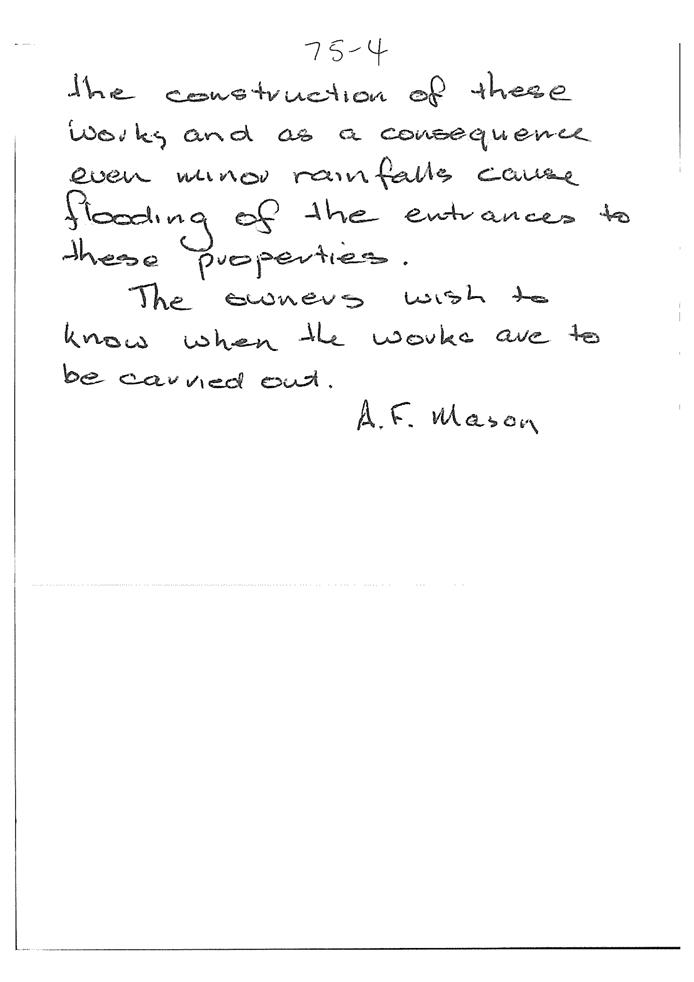 75-4
the construction of these
works and as a consequence
even minor rainfalls cause
flooding of the entrances to
these properties.
The owners wish to
know when the works are to
be carried out.
A.F. Mason